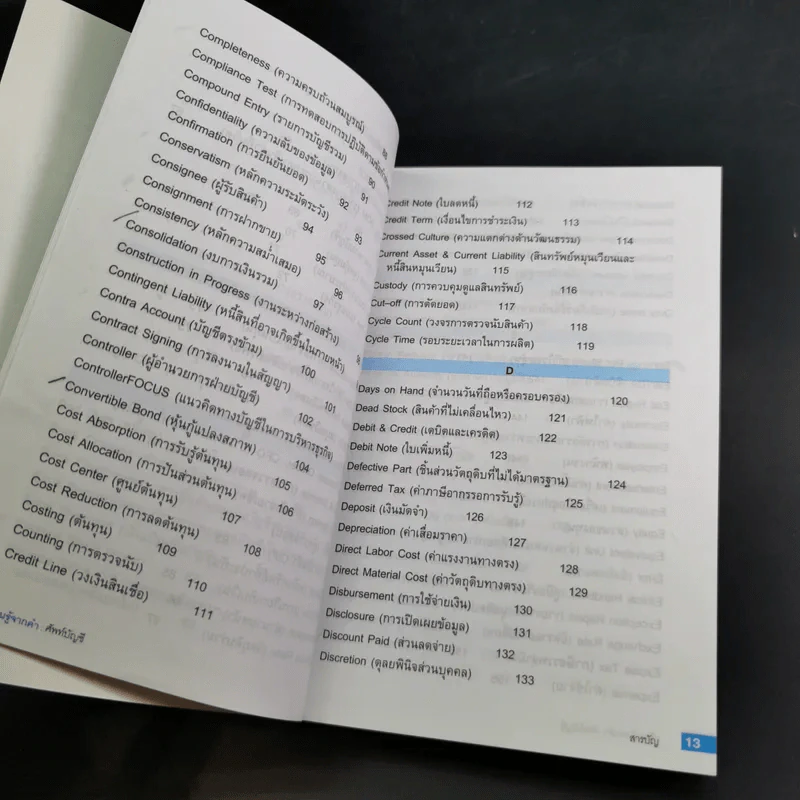 Completeness (ความครบถ้วนสมบูรณ์) 88
Compliance Test (การทดสอบการปฏิบัติตาม
Compound Entry (รายการบัญชีรวม) 90
Confidentiality (ความลับของข้อมูล) 91
Confirmation (การยืนยันยอด) 92
Conservatism (หลักความระมัดระวัง) 93
Consignee (ผู้รับสินค้า) 94
Consignment (การฝากขาย) 95
Consistency (หลักความสม่ำเสมอ) 96
Consolidation (งบการเงินรวม) 97
Construction in Progress (งานระหว่างก่อสร้าง)
Contingent Liability (หนี้สินที่อาจเกิดขึ้นในภายหน้า)
Contra Account (บัญชีตรงข้าม) 100
Contract Signing (การลงนามในสัญญา) 101
Controller (ผู้อำนวยการฝ่ายบัญชี) 102
ControllerFOCUS (แนวคิดทางบัญชีในการบริหารธุรกิจ)
Convertible Bond (หุ้นกู้แปลงสภาพ) 104
Cost Absorption (การรับรู้ต้นทุน) 105
Cost Allocation (การปันส่วนต้นทุน) 106
Cost Center (ศูนย์ต้นทุน) 107
Cost Reduction (การลดต้นทุน) 108
Costing (ต้นทุน) 109
Counting (การตรวจนับ) 110
Credit Line (วงเงินสินเชื่อ) 111
ศัพท์บัญชี
Credit Note (ใบลดหนี้) 112
Credit Term (เงื่อนไขการชำระเงิน) 113
Crossed Culture (ความแตกต่างด้านวัฒนธรรม) 114
Current Asset & Current Liability (สินทรัพย์หมุนเวียนและ
หนี้สินหมุนเวียน) 115
Custody (การควบคุมดูแลสินทรัพย์) 116
Cut-off (การตัดยอด) 117
Cycle Count (วงจรการตรวจนับสินค้า) 118
Cycle Time (รอบระยะเวลาในการผลิต) 119
D
Days on Hand (จำนวนวันที่ถือหรือครอบครอง) 120
Dead Stock (สินค้าที่ไม่เคลื่อนไหว) 121
Debit & Credit (เดบิตและเครดิต) 122
Debit Note (ใบเพิ่มหนี้) 123
Defective Part (ชิ้นส่วนวัตถุดิบที่ไม่ได้มาตรฐาน) 124
Deferred Tax (ค่าภาษีอากรรอการรับรู้) 125
Deposit (เงินมัดจำ) 126
Depreciation (ค่าเสื่อมราคา) 127
Direct Labor Cost (ค่าแรงงานทางตรง) 128
Direct Material Cost (ค่าวัตถุดิบทางตรง) 129
Disbursement (การใช้จ่ายเงิน) 130
Disclosure (การเปิดเผยข้อมูล) 131
Discount Paid (ส่วนลดจ่าย) 132
Discretion (ดุลยพินิจส่วนบุคคล) 133
สารบัญ 13